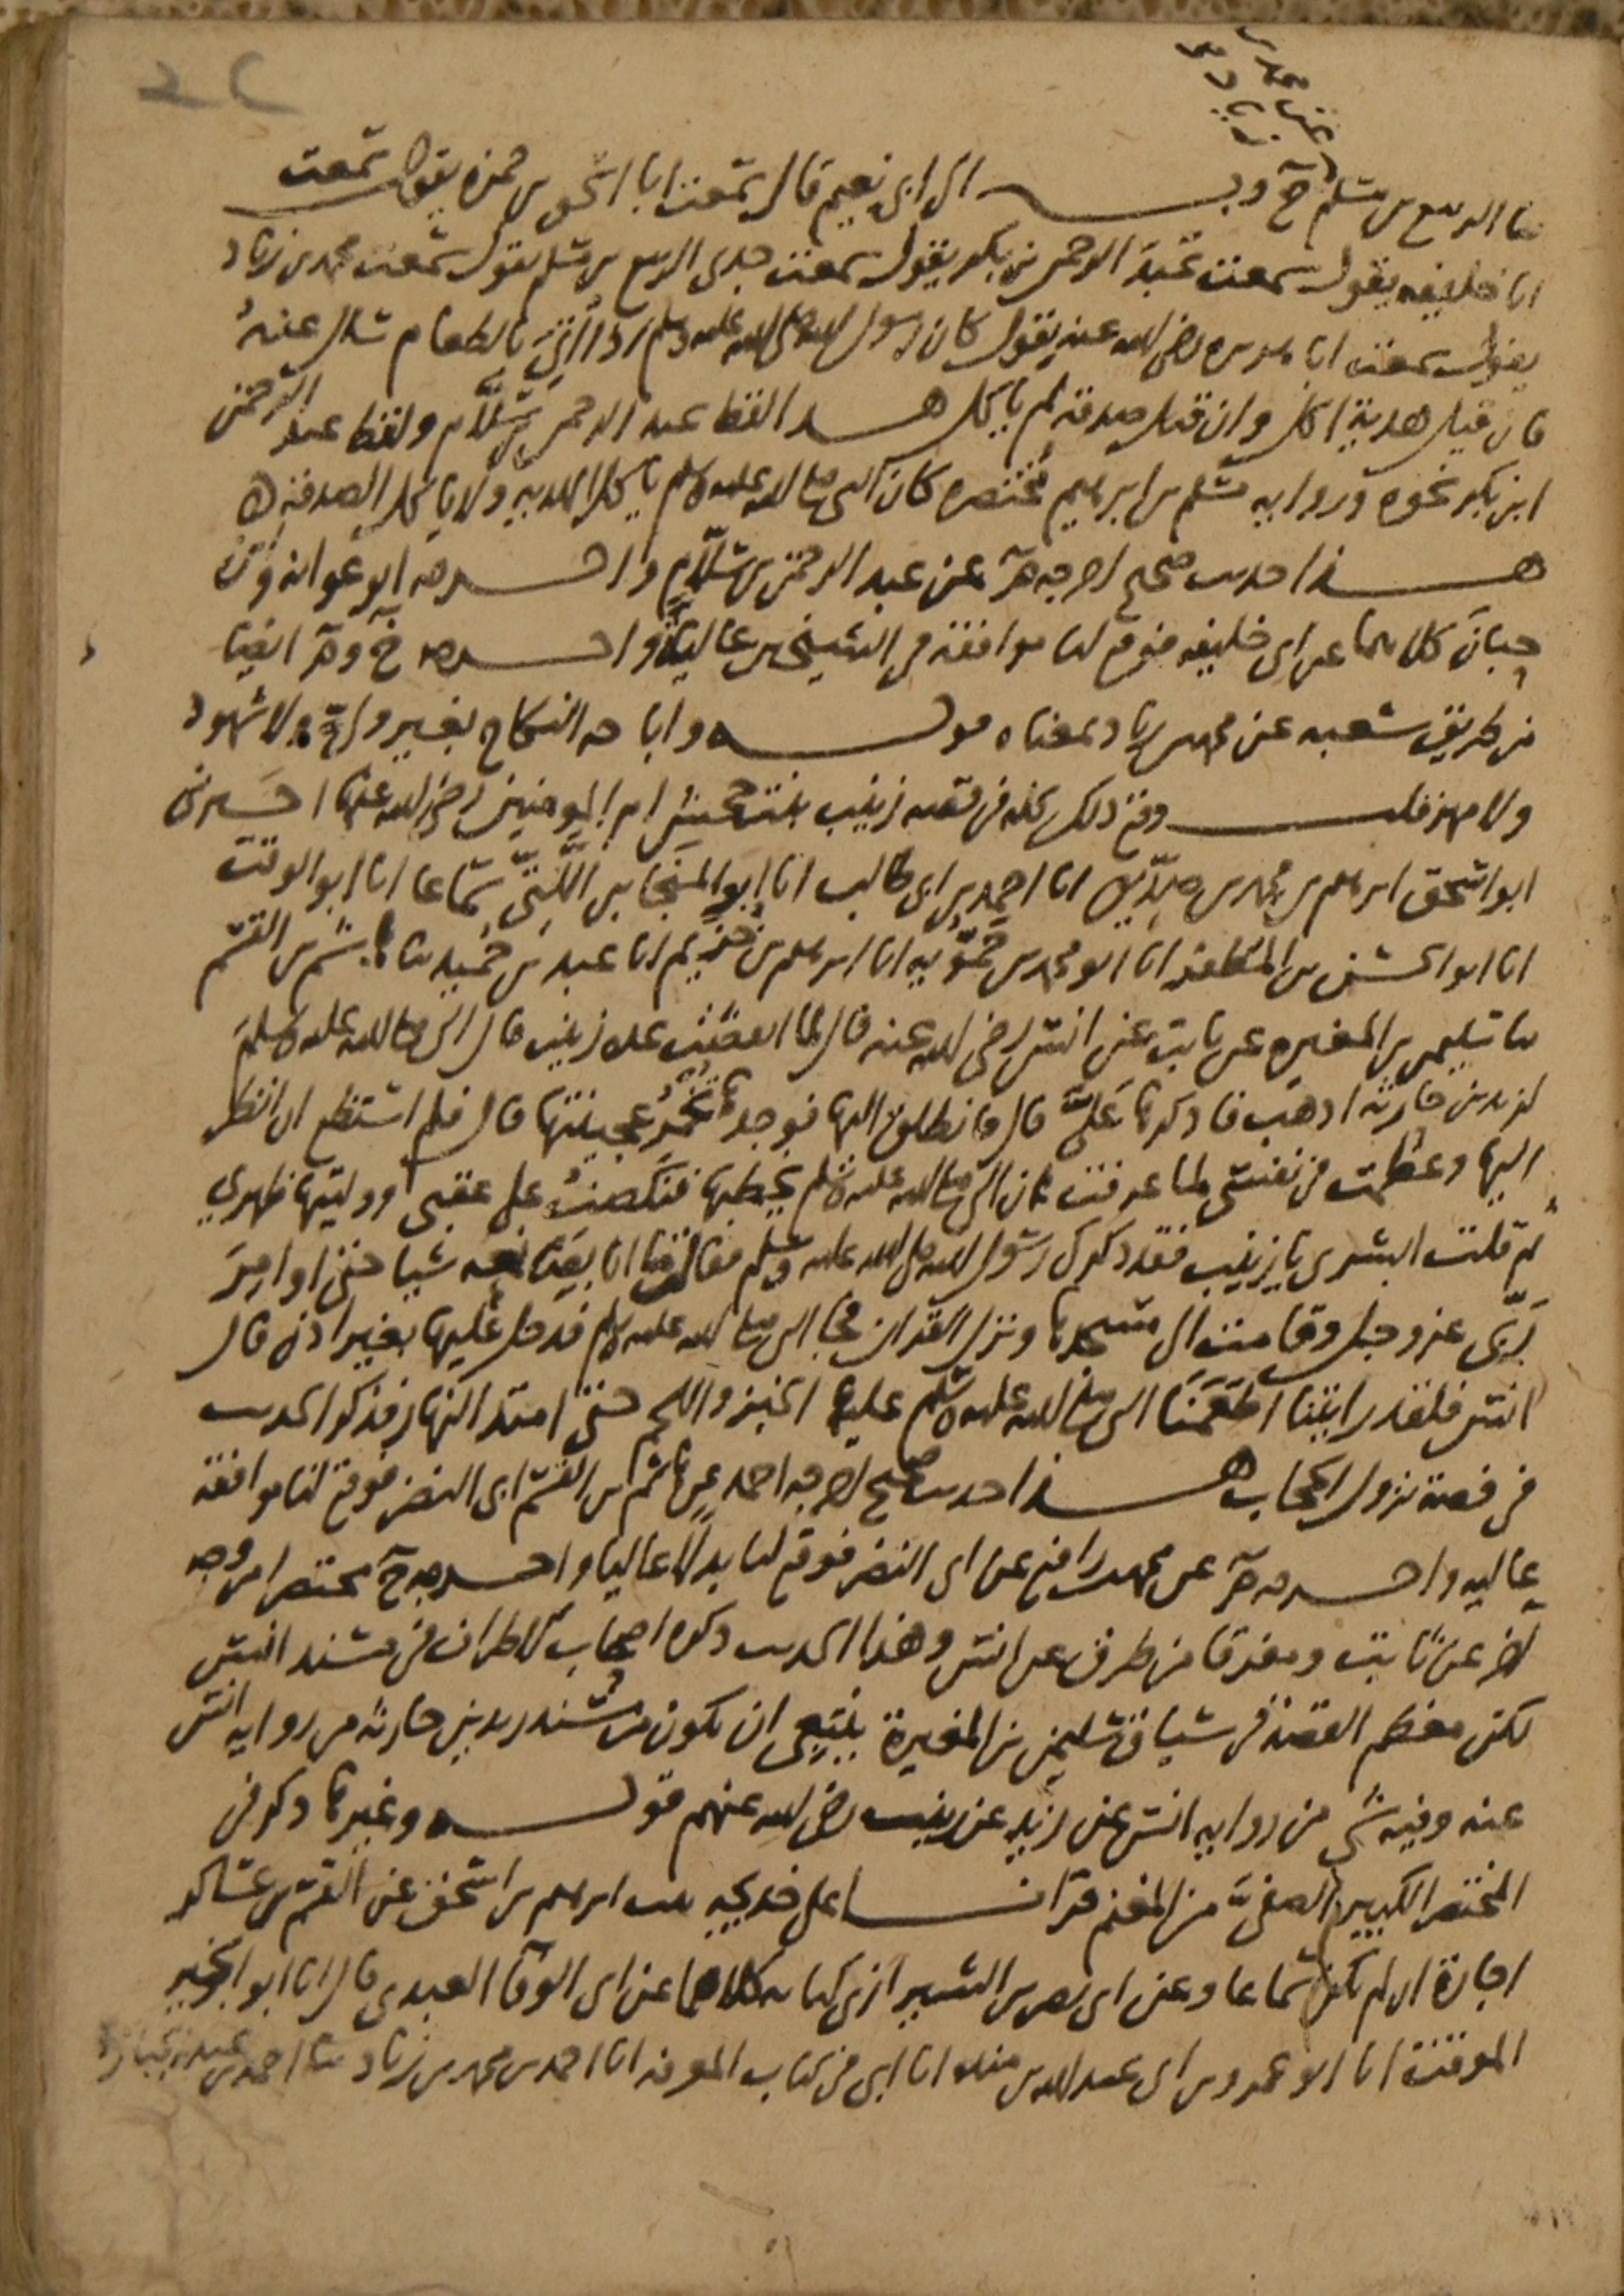 ثنا الربيع بن مسلم ح وبه الى ابى نعيم قال سمعت ابا اسحق بن حمزه يقول سمعت
ابا خليفه يقول سمعت عبد الرحمن بن بكر يقول سمعت جدى الربيع بن مسلم يقول سمعت محمد بن زياد
يقول سمعت ابا هريره رضى الله عنه يقول كان رسول الله صلى الله عليه وسلم اذا اتى بالطعام سال عنه
فان قيل هدية اكل وان قيل صدقة لم ياكل هذا لفظ عبد الرحمن بن سلام ولفظ عبد الرحمن
ابن بكر نحوه ورواية مسلم بن ابرهيم مختصره كان النبي صلى الله عليه وسلم ياكل الهديه ولا ياكل الصدقة
هذا حديث صحيح اخرجه م عن عبد الرحمن بن سلام واخرجه ابو عوانه وابن
حبان كلاهما عن ابى خليفه فوقع لنا موافقة فى الشيخين عاليا واخرجه خ وم ايضا
من طريق شعبه عن محمد بن زياد بمعناه قوله واباحه النكاح بغير ولى ولا شهود
ولا مهر قلت وقع ذلك كله فى قصه زينب بنت جحش ام المومنين رضى الله عنها اخبرنى
ابو اسحق ابرهيم بن محمد بن صديق انا احمد بن ابى طالب انا ابو المنجا بن اللتى سماعا انا ابو الوقت
انا ابو الحسن بن المظفر انا ابو محمد بن حمويه انا ابرهيم بن خزيم انا عبد بن حميد ثنا هاشم بن القسم
ثنا سليمن بن المغيره عن ثابت عن انس رضى الله عنه قال لما انقضت عدة زينب قال النبي صلى الله عليه وسلم
لزيد بن حارثه اذهب فاذكرها على قال فانطلق اليها فوجدها تخمر عجينتها قال فلم استطع ان انظر
اليها وعظمت فى نفسى لما عرفت ان النبي صلى الله عليه وسلم يخطبها فنكصت على عقبى ووليتها ظهرى
ثم قلت ابشرى يا زينب فقد ذكرك رسول الله صلى الله عليه وسلم فقالت ما انا بصانعه شيا حتى اوامر
ربى عز وجل وقامت الى مسجدها ونزل القران فجا النبي صلى الله عليه وسلم فدخل عليها بغير اذن قال
انس فلقد رايتنا اطعمنا النبي صلى الله عليه وسلم عليها الخبز واللحم حتى امتد النهار فذكر الحديث
فى قصة نزول الحجاب هذا حديث صحيح اخرجه احمد عن هاشم بن القسم ابى النضر فوقع لنا موافقة
عاليه واخرجه م عن محمد بن رافع عن ابى النضر فوقع لنا بدلا عاليا واخرجه خ مختصرا من وجه
اخر عن ثابت ومفرقا من طرق عن انس وهذا الحديث ذكره اصحاب الاطراف فى مسند انس
لكن معظم القصة فى سياق سليمن بن المغيرة ينبغى ان يكون من مسند زيد بن حارثه من روايه انس
عنه وفيه شى من روايه انس عن زيد عن زينب رضى الله عنهم قوله وغيرها ذكر فى
المختصر الكبير الصفى من المغنم قرات على خديجه بنت ابرهيم بن اسحق عن القسم بن عساكر
اجازة ان لم يكن سماعا وعن ابى نصر بن الشيرازى كتابه كلاهما عن ابى الوفا العبدى قال انا ابو الخير
الموقت انا ابو عمرو بن ابى عبد الله بن منده انا ابى فى كتاب المعرفه انا احمد بن محمد بن زياد ثنا احمد بن عبد الجبار